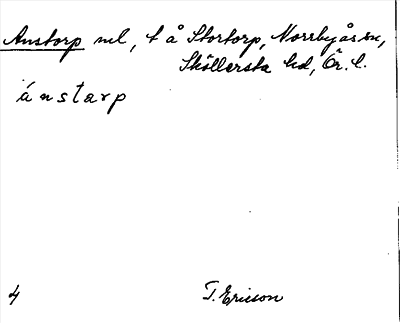 Anstorp ml, t å Stortorp, Norrbyås sn,
Sköllersta hd, Ör. l.
ánstarp
4 T. Ericson